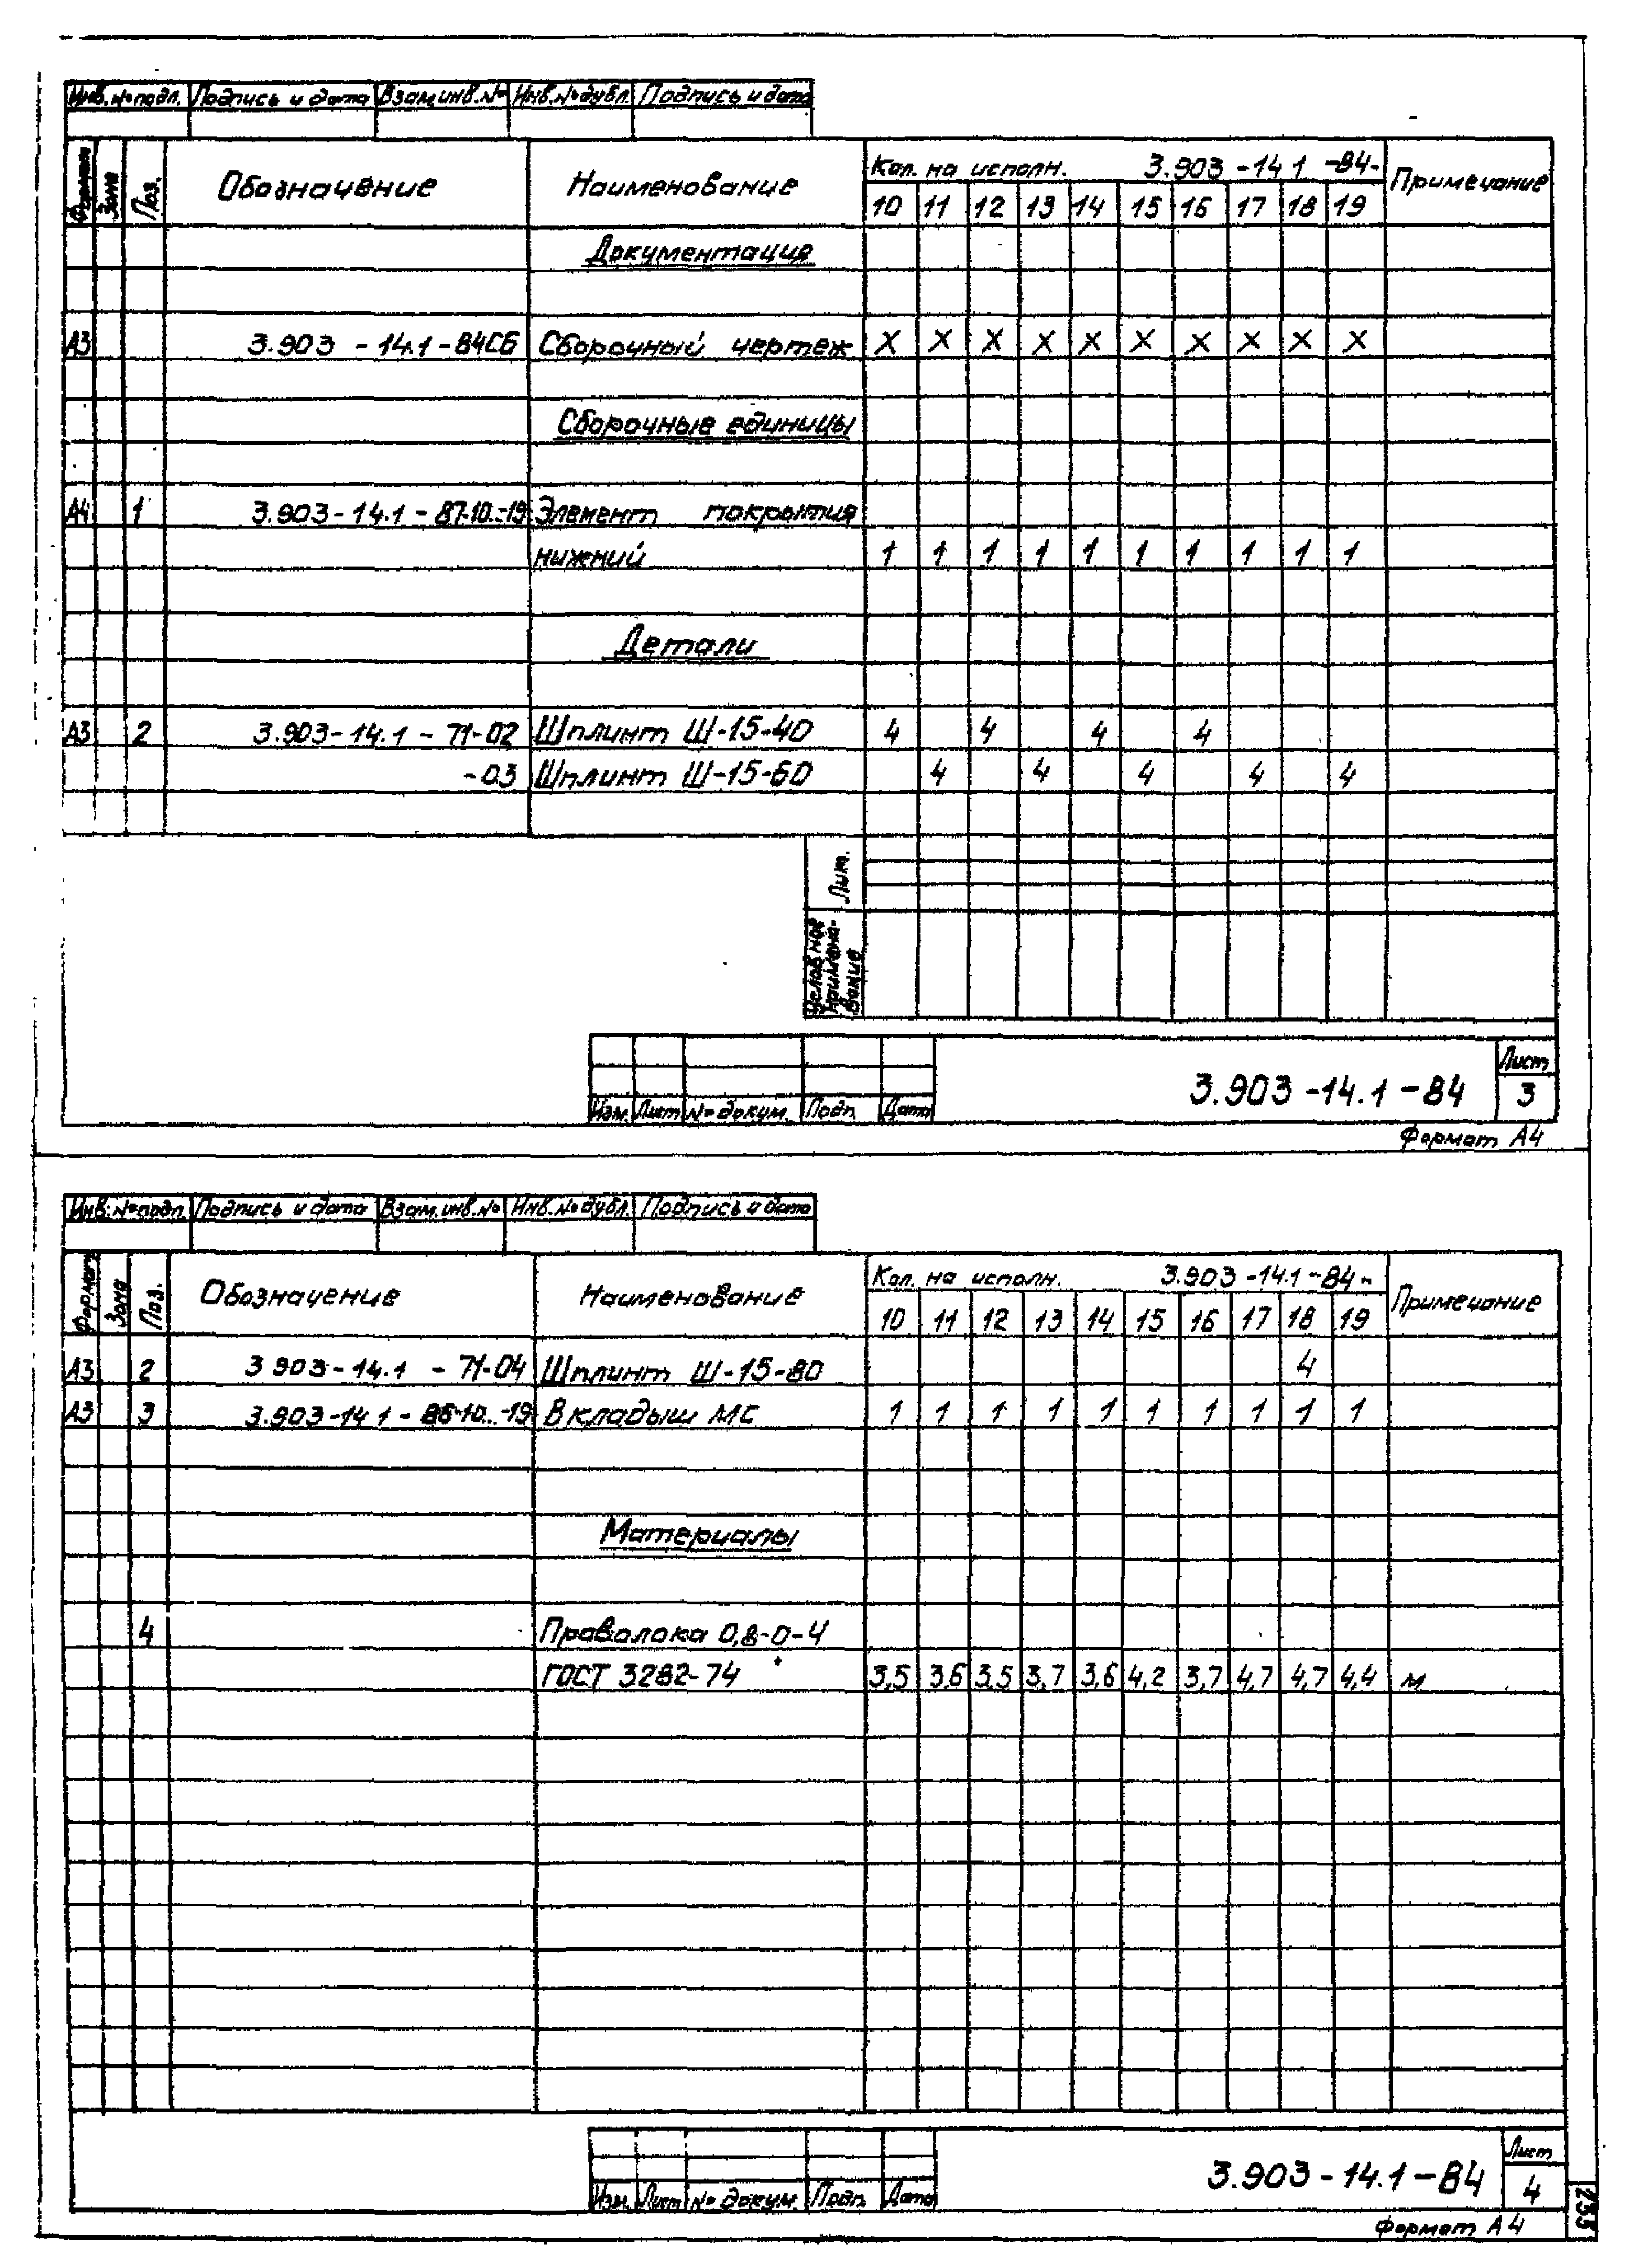 Инв. № подл. Подпись и дата Взам.инв.№ Инв.№ дубл. Подпись и дата
Формат Зона Поз. Обозначение Наименование Кол. на исполн. 3.903-14 1 -84- Примечание
10 11 12 13 14 15 16 17 18 19
Документация
А3 3.903 - 14.1-84СБ Сборочный чертеж X X X X X X X X X X
Сборочные единицы
А4 1 3.903-14.1-87-10..-19 Элемент покрытия
нижний 1 1 1 1 1 1 1 1 1 1
Детали
А3 2 3.903-14.1-71-02 Шплинт Ш-15-40 4 4 4 4
-03 Шплинт Ш-15-60 4 4 4 4 4
Лит.
Условное
примено-
вание
3.903-14.1-84
Лист
3
Изм. Лист № докум. Подп. Дата
Формат А4
Инв.№ подл. Подпись и дата Взам.инв.№ Инв.№ дубл. Подпись и дата
Формат Зона Поз. Обозначение Наименование Кол. на исполн. 3.903-14.1-84- Примечание
10 11 12 13 14 15 16 17 18 19
А3 2 3 903-14.1 - 71-04 Шплинт Ш-15-80 4
А3 3 3.903-14 1-86-10..-19 Вкладыш МС 1 1 1 1 1 1 1 1 1 1
Материалы
4 Проволока 0,8-0-Ч
ГОСТ 3282-74* 3,5 3,6 3,5 3,7 3,6 4,2 3,7 4,7 4,7 4,4 м
3.903-14.1-84
Лист
4
Изм. Лист № докум. Подп. Дата
Формат А4
233